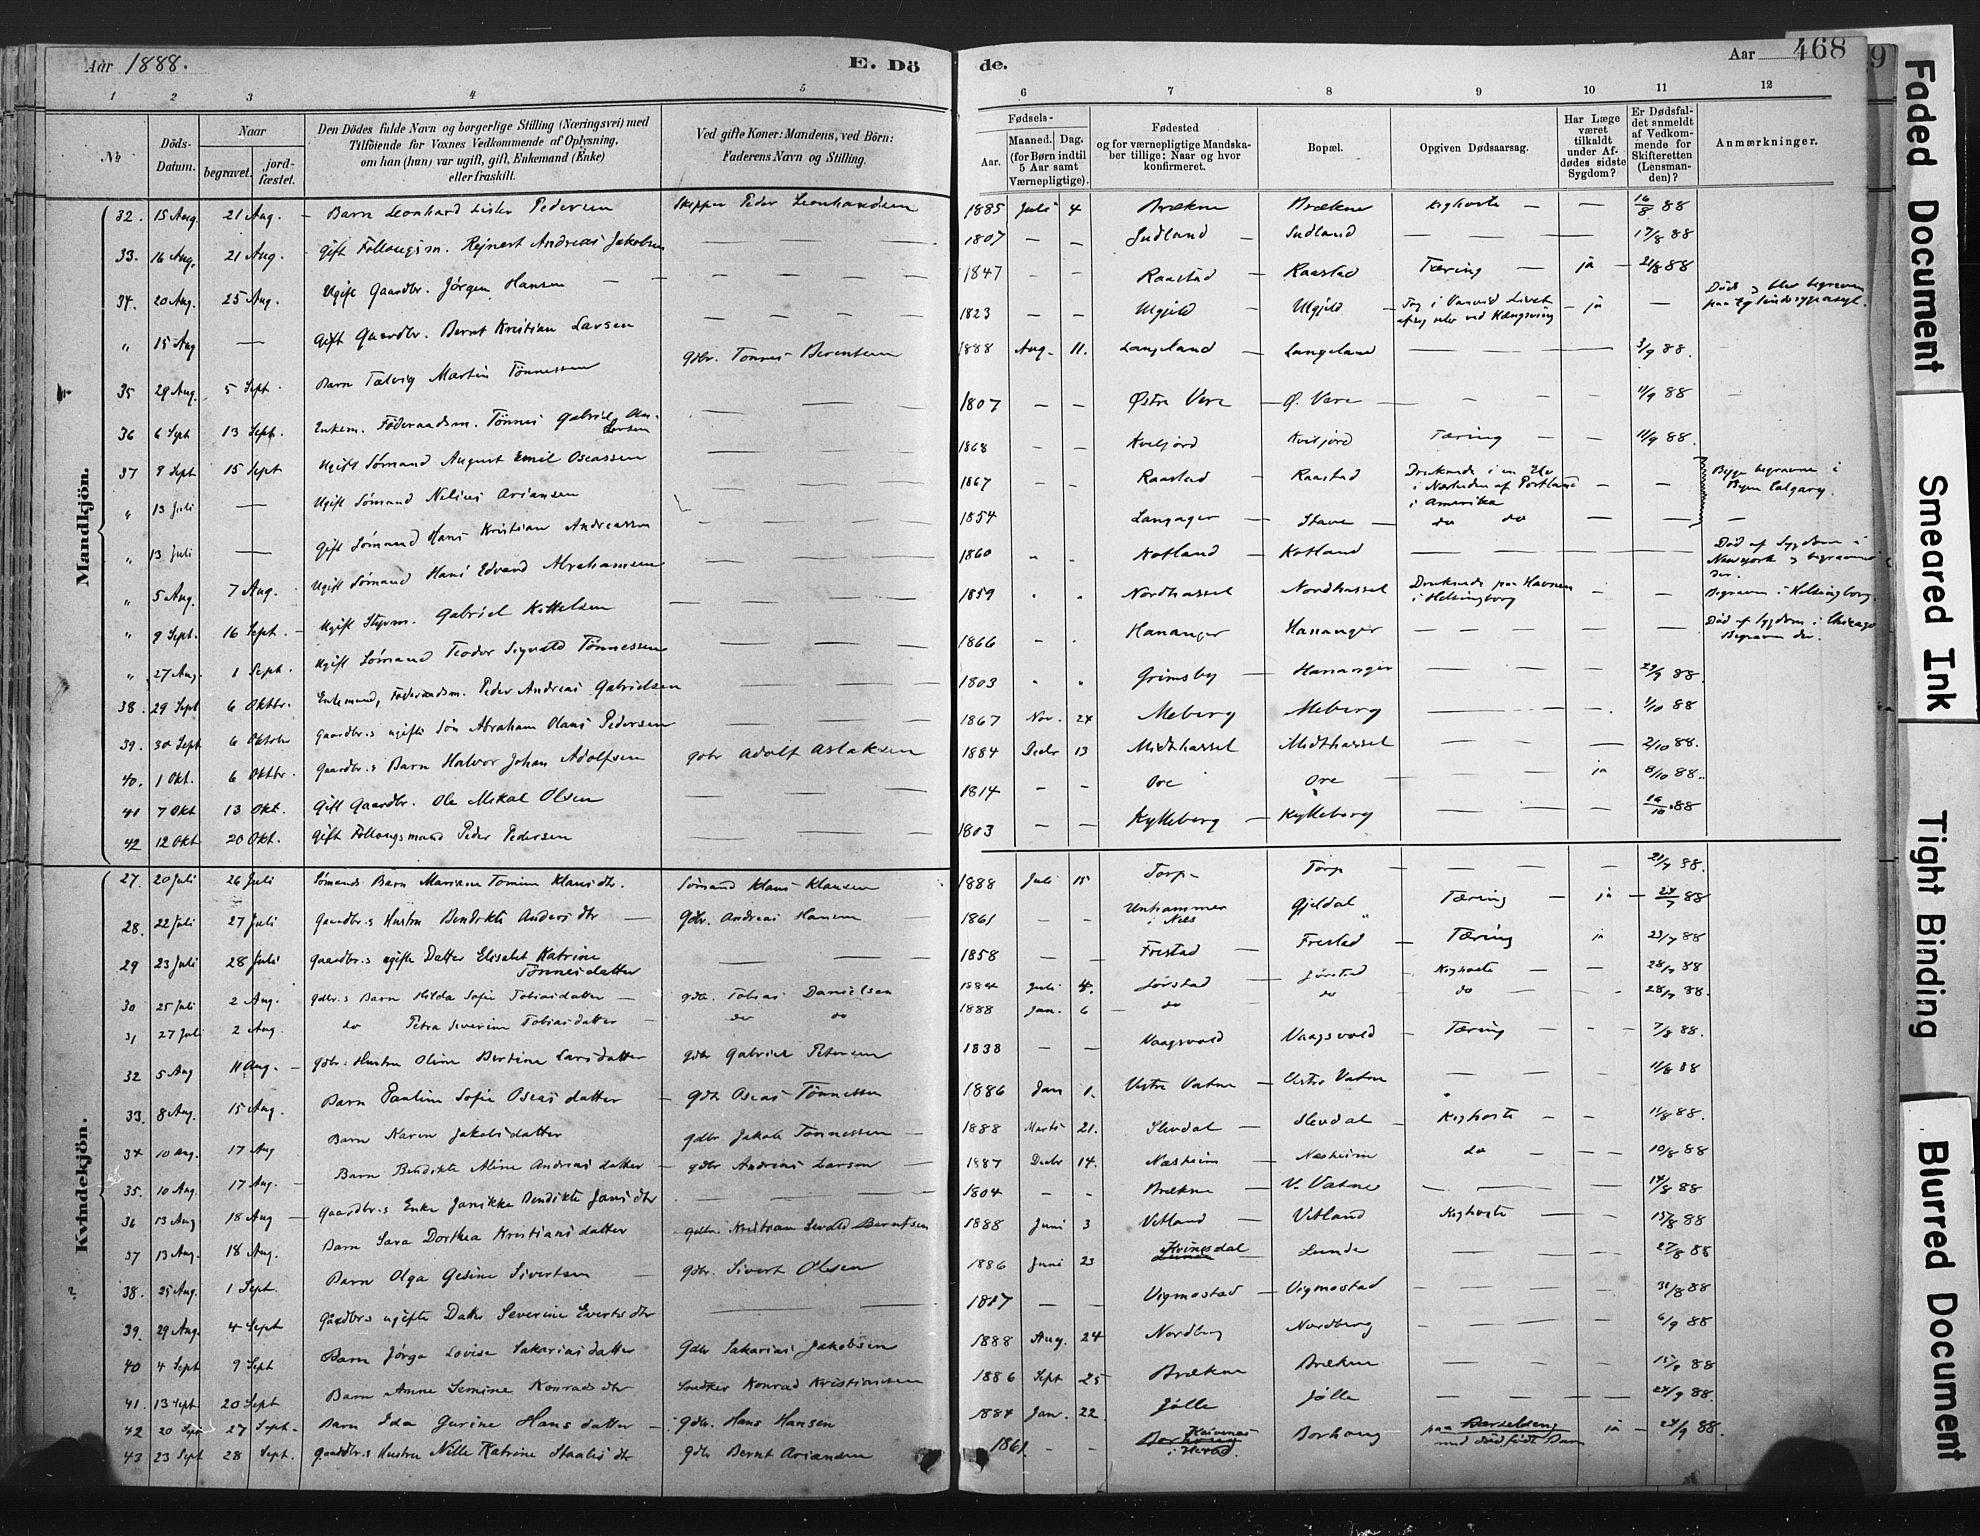 Aar 1888.
E. Dö
de.
Aar
468
9
1 2 3 4 5 6 7 8 9 10 11 12
No
Döds-Datum.
Naar
begravet.
jord-fæstet.
Den Dödes fulde Navn og borgerlige Stilling (Næringsvei) med
Tilföiende for Voxnes Vedkommende af Oplysning,
om han (hun) var ugift, gift, Enkemand (Enke)
eller fraskilt.
Ved gifte Koner: Mandens, ved Börn:
Faderens Navn og Stilling.
Fødsels-
Aar.
Maaned. Dag.
(for Børn indtil
5 Aar samt
Værnepligtige).
Fødested
og for værnepligtige Mandska-
ber tillige: Naar og hvor
konfirmeret.
Bopæl.
Opgiven Dødsaarsag.
Har Læge
været
tilkaldt
under Af-
dødes sidste
Sygdom?
Er Dødsfal-
det anmeldt
af Vedkom-
mende for
Skifteretten
(Lensman-
den)?
Anmærkninger.
Mandkjön.
32. 15 Aug. 21 Aug. Barn Leonhard Lister Pedersen Skipper Peder Leonhardsen 1885 Juli 4 Brækne Brækne Kighoste — — 16/8 88
33. 16 Aug. 21 Aug. Gift Follaugsm. Rejnert Andreas Jakobsen 1807 — — Sudland Sudland — — 17/8 88
34. 20 Aug. 25 Aug. Ugift Gaardbr. Jörgen Hansen 1847 — — Raastad Raastad Tæring ja 21/8 88
" 15 Aug — Gift Gaardbr. Bernt Kristian Larsen 1823 — — Ulgjeld Ulgjeld Tog i Vanvid Livet af sig selv ved Hængning ja — Död og blev begraven paa Eg sindssygeasyl.
35 29 Aug. 5 Sept. Barn Talvig Martin Tönnessen Gdbr. Tönnes Berentsen 1888 Aug. 11. Langeland Langeland — — 3/9 88.
36 6 Sept 13 Sept. Enkem. Föderaadsm. Tönnes Gabriel 1807 — — Østre Vere Ø. Vere — — 11/9 88
37 9 Sept 15 Sept Ugift Sömand August Emil Oscassen 1868 — — Kveljord Kveljord Tæring — — 11/9 88.
" 13 Juli — Ugift Sömand Nelius Ariansen 1867 — — Raastad Raastad Druknede i en Elv i Nærheden af Portland i Amerika — — Begge begravne i Byen Calgary.
" 13 Juli — Gift Sömand Hans Kristian Andreassen 1854 Langager Stave do do — —
" 5 Aug. 7 Aug. Ugift Sömand Hans Edvard Abrahamsen 1860 Kotland Kotland — — — Död af Sygdom i Newyork og begraven der.
" 9 Sept. 16 Sept. Ugift Styrm. Gabriel Kittelsen 1859 Nordhassel Nordhassel Druknede paa Havnen i Helsingborg — — Begraven i Helsingborg.
" 27 Aug. 1 Sept. Ugift Sömand Teodor Sigvald Tönnessen 1866 Hananger Hananger — — — Död af Sygdom i Chicago Begraven der.
38. 29 Sept 6 Oktbr. Enkemand, Föderaadsm. Peder Andreas Gabrielsen 1803 Grimsby Hananger — — 29/9 88.
39. 30 Sept 6 Oktober Gaardbr.s ugifte Sön Abraham Olaus Pedersen 1867 Nov. 24 Meberg Meberg — — 1/10 88
40. 1 Okt. 6 Oktbr. Gaardbr.s Barn Halvor Johan Adolfsen Gdbr Adolf Aslaksen 1884 Decbr 13 Midthassel Midthassel — — 2/10 88.
41 7 Okt 13 Okt. Gift Gaardbr. Ole Mikal Olsen 1814 — — Ore Ore — ja 8/10 88.
42 12 Okt 20 Okt. Gift Follaugsmand Peder Pedersen 1803 — — Kylleberg Kylleberg — — 88
Kvindekjön.
27. 20 Juli 26 Juli Sömands Barn Mariane Tomine Klausdtr. Sömand Klaus Klausen 1888 Juli 15 Torp Torp — — 21/7 88.
28. 22 Juli 27 Juli Gaardbr.s Hustru Bendikte Andersdtr Gdbr. Andreas Hansen 1861 — — Unhammer i Nes Gjeldal Tæring ja 24/7 88
29 23 Juli 28 Juli Gaardbr.s ugifte Datter Elisabet Katrine Tönnesdatter 1858 — — Frestad Frestad Tæring ja 23/7 88
30 25 Juli 2 Aug. Gdbr.s Barn Hilda Sofie Tobiasdatter Gdbr. Tobias Danielsen 1884 Juli 4. Jörstad Jörstad Kighoste — — 28/7 88
31 27 Juli 2 Aug. do Petra Severine Tobiasdatter do do 1888 Jan. 6 do do do — — 28/7 88.
32 5 Aug 11 Aug. Gdbr.s Hustru Oline Bertine Larsdatter Gdbr Gabriel Petersen 1838 — — Vaagsvold Vaagsvold Tæring — — 7/8 88.
33. 8 Aug. 15 Aug. Barn Pauline Sofie Oseasdatter Gdbr Oseas Tönnessen 1886 Jan 1. Vestre Vatne Vestre Vatne — — 11/8 88
34 10 Aug. 17 Aug Barn Karen Jakobsdatter Gdbr Jakob Tönnessen 1888 Marts 21. Slevdal Slevdal Kighoste — — 11/8 88.
35. 10 Aug. 17 Aug. Barn Bendikte Aline Andreasdatter Gdbr Andreas Larsen 1887 Decbr 14. Næsheim Næsheim do — — 10/8 88
36 13 Aug 18 Aug Gaardbr.s Enke Janikke Bendikte Jansdtr 1804 — — Brækne V. Vatne — — 14/8 88
37 13 Aug. 18 Aug. Barn Sara Dorthea Kristiansdatter Gdbr. Kristian Sevald Berntsen 1888 Juni 3 Vetland Vetland Kighoste — — 15/8 88
38. 25 Aug. 1 Sept. Barn Olga Gesine Sivertsen Gdbr. Sivert Olsen 1886 Juni 23 Kvinesdal Lunde — — 27/8 88
39. 29 Aug. 4 Sept Gaardbr.s ugifte Datter Severine Evertsdtr 1817 — — Vigmostad Vigmostad — — 88
40 4 Sept 9 Sept Barn Jörga Lovise Sakariasdatter Gdbr Sakarias Jakobsen 1888 Aug. 24 Nordberg Nordberg — — 6/9 88
41. 13 Sept 20 Sept Barn Anne Semine Konradsdtr Snedker Konrad Kristiansen 1886 Sept 25 Brækne Brækne — — 15/9 88
42 20 Sept 27 Sept. Barn Ida Gurine Hansdatter Gdbr. Hans Hansen 1884 Jan. 22. Jölle Jölle — — 24/9 88.
43 23 Sept 28 Sept. Gaardbr.s Hustru Nille Katrine Staalesdtr Gdbr Bernt Ariansen 1861. — — i Herad. Borhaug paa Barselseng med dödfödt Barn ja 24/9 88.
Faded Document
Smeared Ink
Tight Binding
Blurred Document